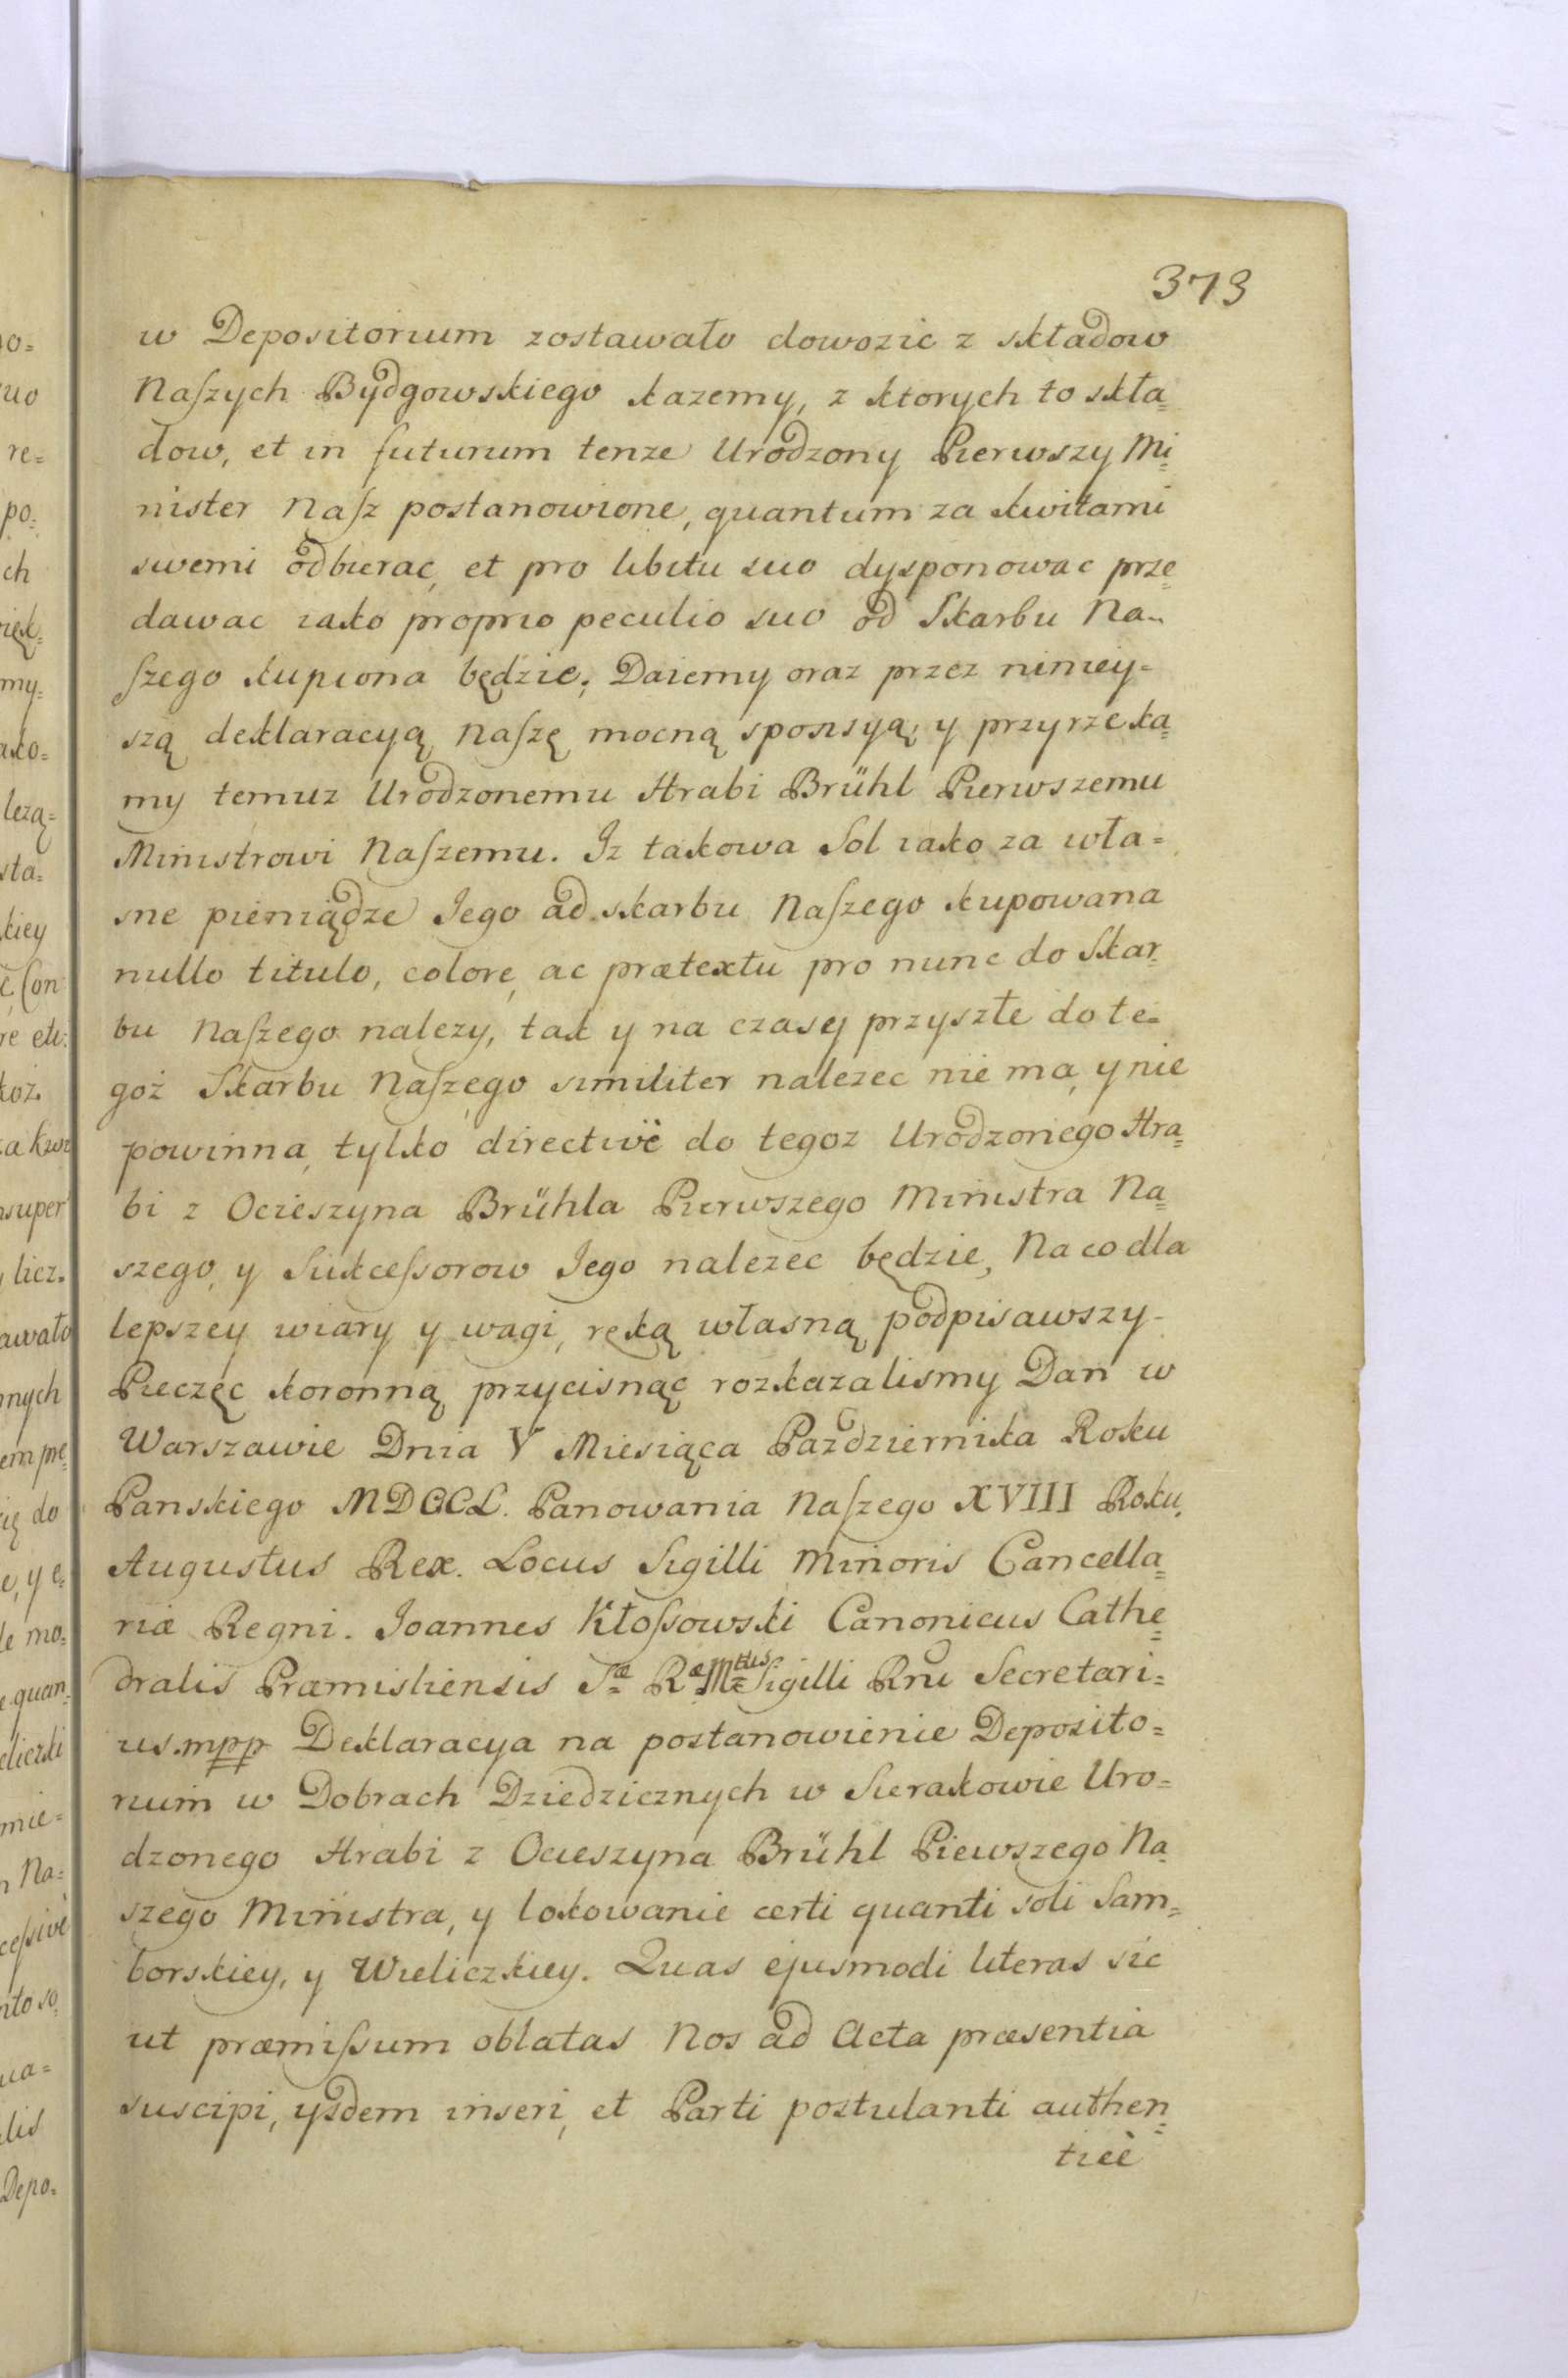 373
w Depositorium zostawało dowozic z składow
Naszych Bydgowskiego kazemy, z ktorych to skła=
dow, et in futurum tenze Urodzony Pierwszy Mi=
nister Nasz postanowione, quantum za kwitami
swemi odbierac, et pro libitu suo dysponowac prze=
dawac iako proprio peculio suo od Skarbu Na=
szego kupiona będzie; Daiemy oraz przez niniey=
szą deklaracyą Naszę mocną sponsyą; y przyrzeka=
my temuz Urodzonemu Hrabi Brühl Pierwszemu
Ministrowi Naszemu. Iz takowa Sol iako za wła=
sne pieniądze Jego ad skarbu Naszego kupowana
nullo titulo, colore, ac prætextu pro nunc do Skar=
bu Naszego nalezy, tak y na czasy przyszłe do te=
goż Skarbu Naszego similiter nalezec nie ma, y nie
powinna, tylko directivè do tegoz Urodzonego Hra=
bi z Ocieszyna Brühla Pierwszego Ministra Na=
szego, y Sukcessorow Jego nalezec będzie, Na co dla
lepszey wiary y wagi, ręką własną podpisawszy
Pieczęc koronną przycisnąc rozkazalismy Dan w
Warszawie Dnia V Miesiąca Pazdziernika Roku
Panskiego MDCCL. Panowania Naszego XVIII Roku.
Augustus Rex. Locus Sigilli Minoris Cancella=
riæ Regni. Joannes Kłossowski Canonicus Cathe=
dralis Præmisliensis Sæ Ræ Mttis Sigilli Rni Secretari=
us. mpp Deklaracya na postanowienie Deposito=
rium w Dobrach Dziedzicznych w Sierakowie Uro=
dzonego Hrabi z Ocieszyna Brühl Piewszego Na=
szego Ministra, y lokowanie certi quanti soli Sam=
borskiey, y Wieliczkiey. Quas ejusmodi literas sic
ut præmissum oblatas Nos ad Acta præsentia
suscipi, ysdem inseri, et Parti postulanti authen=
ticè